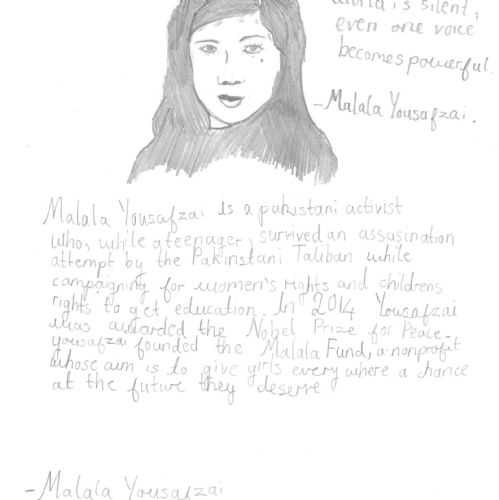 world is silent,
even one voice
becomes powerful.
-Malala Yousafzai.
Malala Yousafzai is a pakistani activist
who, while a teenager, survived an assasination
attempt by the Pakinstani Taliban while
campaigning for women's rights and childrens
rights to get education. In 2014 Yousafzai
was awarded the Nobel Prize for Peace.
yousafzai founded the Malala Fund, a nonprofit
whose aim is to give girls everywhere a chance
at the future they deserve.
-Malala Yousafzai